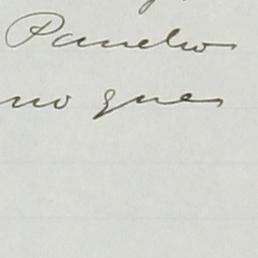 Pancho
no que